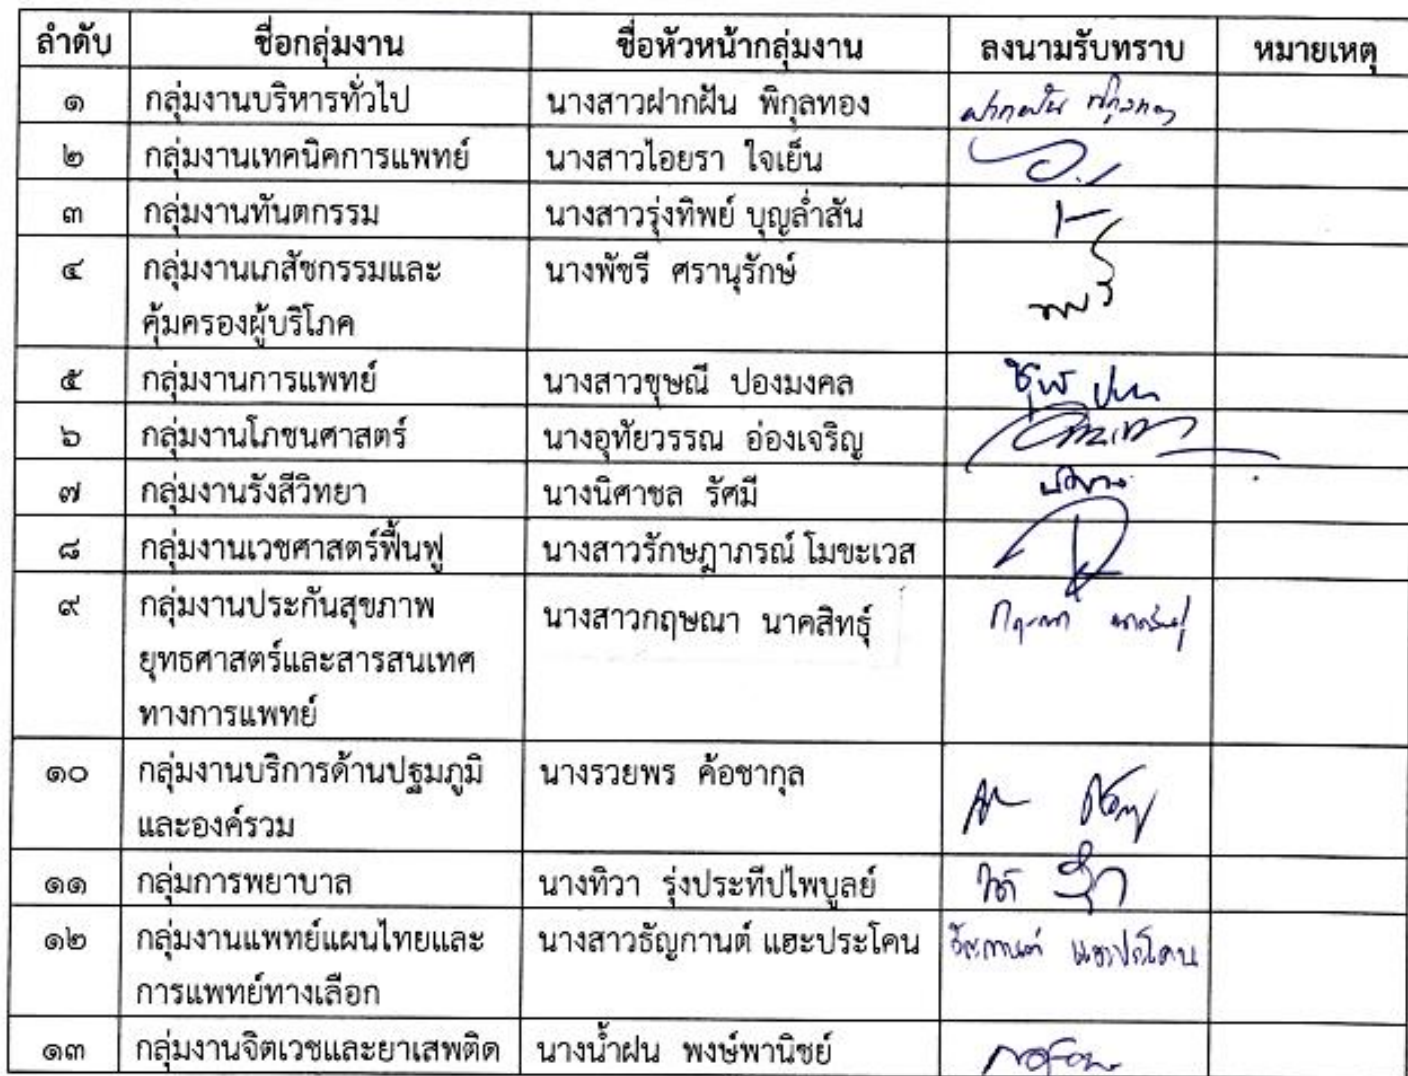 ลำดับ ชื่อกลุ่มงาน ชื่อหัวหน้ากลุ่มงาน ลงนามรับทราบ หมายเหตุ
๑ กลุ่มงานบริหารทั่วไป นางสาวฝากฝัน พิกุลทอง ฝากฝัน พิกุลทอง
๒ กลุ่มงานเทคนิคการแพทย์ นางสาวไอยรา ใจเย็น
๓ กลุ่มงานทันตกรรม นางสาวรุ่งทิพย์ บุญล่ำสัน
๔ กลุ่มงานเภสัชกรรมและ นางพัชรี ศรานุรักษ์
คุ้มครองผู้บริโภค
๕ กลุ่มงานการแพทย์ นางสาวชุษณี ปองมงคล
๖ กลุ่มงานโภชนศาสตร์ นางอุทัยวรรณ อ่องเจริญ
๗ กลุ่มงานรังสีวิทยา นางนิศาชล รัศมี
๘ กลุ่มงานเวชศาสตร์ฟื้นฟู นางสาวรักษฎาภรณ์ โมขะเวส
๙ กลุ่มงานประกันสุขภาพ นางสาวกฤษณา นาคสิทธุ์
ยุทธศาสตร์และสารสนเทศ
ทางการแพทย์
๑๐ กลุ่มงานบริการด้านปฐมภูมิ นางรวยพร ค้อชากุล
และองค์รวม
๑๑ กลุ่มการพยาบาล นางทิวา รุ่งประทีปไพบูลย์
๑๒ กลุ่มงานแพทย์แผนไทยและ นางสาวธัญกานต์ แฮะประโคน ธัญกานต์ แฮะประโคน
การแพทย์ทางเลือก
๑๓ กลุ่มงานจิตเวชและยาเสพติด นางน้ำฝน พงษ์พานิชย์